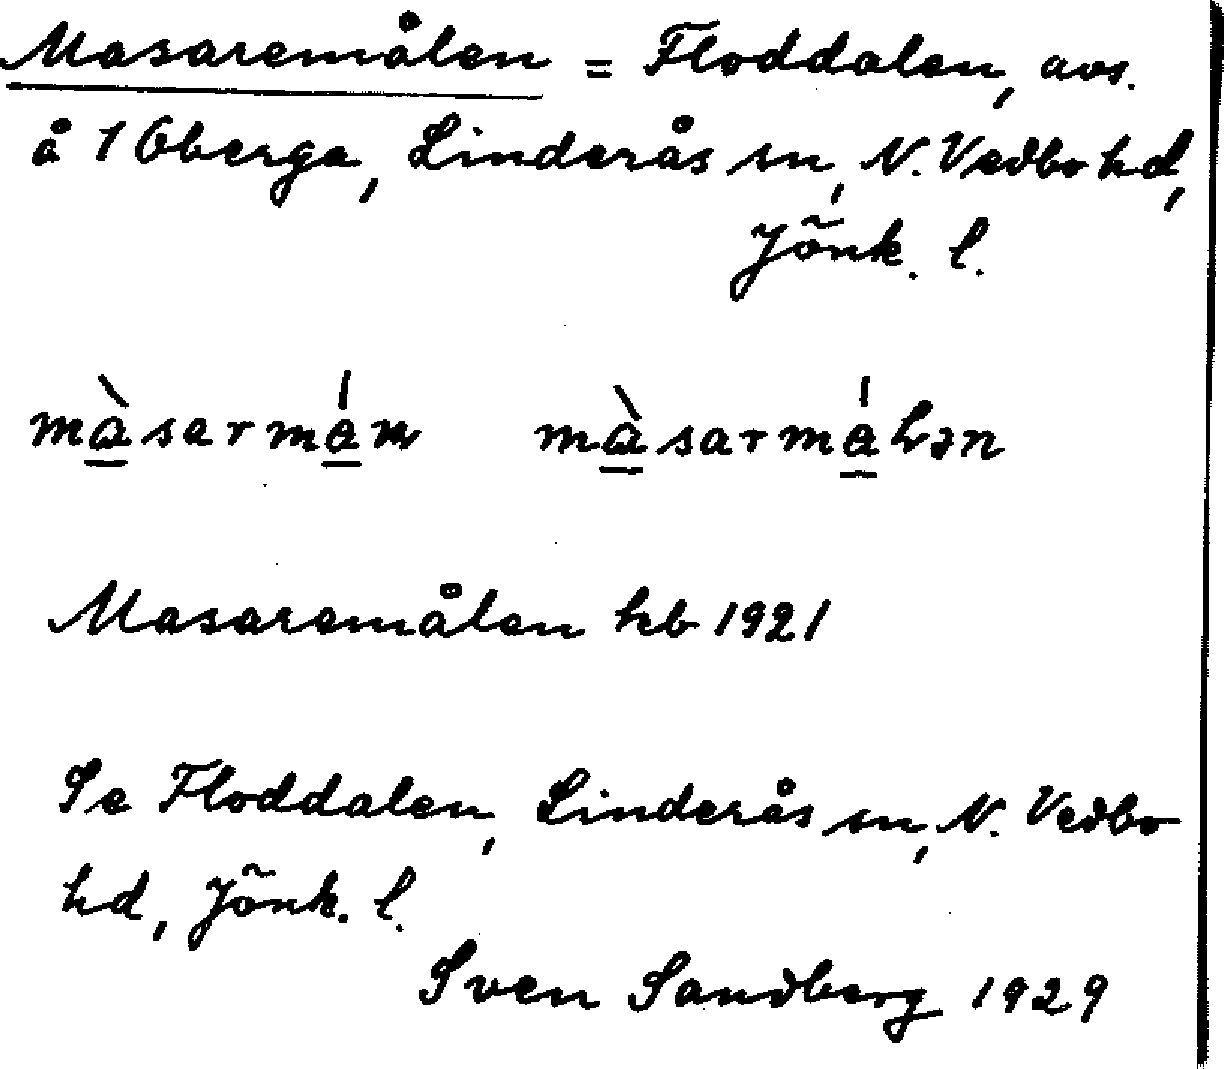 Masaremålen = Floddalen, avs.
å 1 Oberga, Linderås sn, N. Vedbo hd,
Jönk. l.
Masaremålen hb 1921
Se Floddalen, Linderås sn, N. Vedbo
hd, Jönk. l.
Sven Sandberg 1929